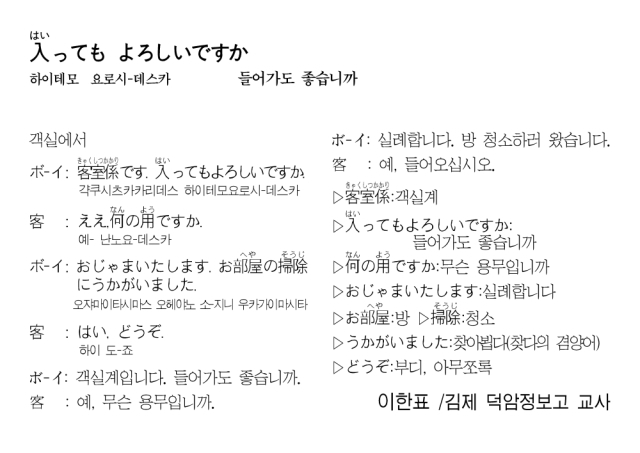 はい
入っても よろしいですか
하이테모 요로시-데스카 들어가도 좋습니까
객실에서
ボ-イ: 客室係です. 入ってもよろしいですか.
きゃくしつかかり はい
갹쿠시츠카카리데스 하이테모요로시-데스카
客 : ええ.何の用ですか.
なん よう
예- 난노요-데스카
ボ-イ: おじゃまいたします. お部屋の掃除
へや そうじ
にうかがいました.
오쟈마이타시마스 오헤야노 소-지니 우카가이마시타
客 : はい, どうぞ.
하이 도-죠
ボ-イ: 객실계입니다. 들어가도 좋습니까.
客 : 예, 무슨 용무입니까.
ボ-イ: 실례합니다. 방 청소하러 왔습니다.
客 : 예, 들어오십시오.
▷客室係:객실계
きゃくしつかかり
▷入ってもよろしいですか:
はい
들어가도 좋습니까
▷何の用ですか:무슨 용무입니까
なん よう
▷おじゃまいたします:실례합니다
▷お部屋:방 ▷掃除:청소
へや そうじ
▷うかがいました:찾아뵙다(찾다의 겸양어)
▷どうぞ:부디, 아무쪼록
이한표 /김제 덕암정보고 교사